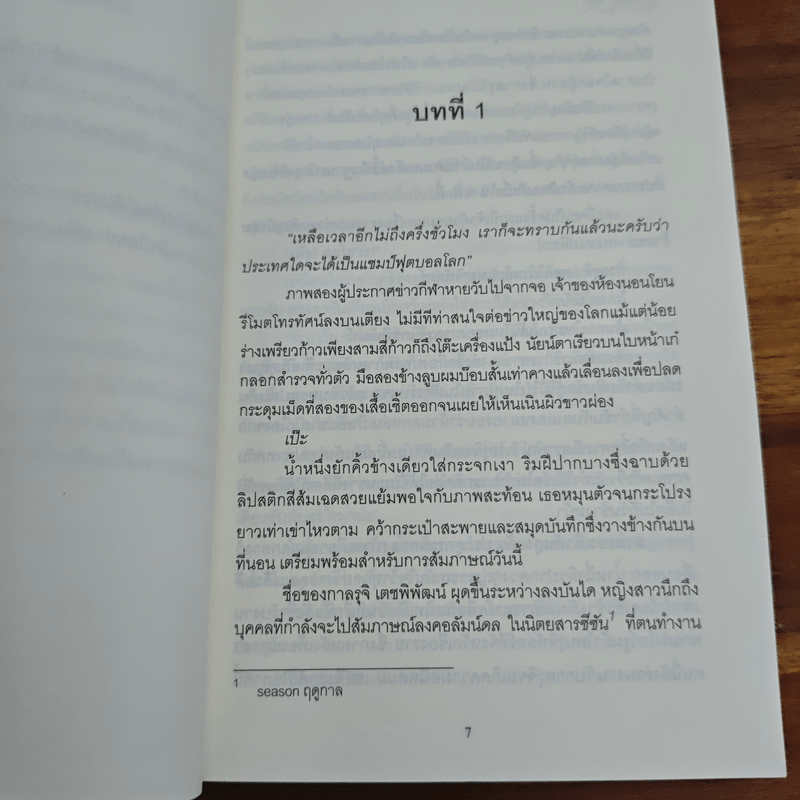 บทที่ 1
"เหลือเวลาอีกไม่ถึงครึ่งชั่วโมง เราก็จะทราบกันแล้วนะครับว่า
ประเทศใดจะได้เป็นแชมป์ฟุตบอลโลก"
ภาพสองผู้ประกาศข่าวกีฬาหายวับไปจากจอ เจ้าของห้องนอนโยน
รีโมตโทรทัศน์ลงบนเตียง ไม่มีทีท่าสนใจต่อข่าวใหญ่ของโลกแม้แต่น้อย
ร่างเพรียวก้าวเพียงสามสี่ก้าวก็ถึงโต๊ะเครื่องแป้ง นัยน์ตาเรียวบนใบหน้าเก๋
กลอกสำรวจทั่วตัว มือสองข้างลูบผมบ๊อบสั้นเท่าคางแล้วเลื่อนลงเพื่อปลด
กระดุมเม็ดที่สองของเสื้อเชิ้ตออกจนเผยให้เห็นเนินผิวขาวผ่อง
เป๊ะ
น้ำหนึ่งยักคิ้วข้างเดียวใส่กระจกเงา ริมฝีปากบางซึ่งฉาบด้วย
ลิปสติกสีส้มเฉดสวยแย้มพอใจกับภาพสะท้อน เธอหมุนตัวจนกระโปรง
ยาวเท่าเข่าไหวตาม คว้ากระเป๋าสะพายและสมุดบันทึกซึ่งวางข้างกันบน
ที่นอน เตรียมพร้อมสำหรับการสัมภาษณ์วันนี้
ชื่อของกาลรุจิ เตชพิพัฒน์ ผุดขึ้นระหว่างลงบันได หญิงสาวนึกถึง
บุคคลที่กำลังจะไปสัมภาษณ์ลงคอลัมน์ดล ในนิตยสารซีซัน1 ที่ตนทำงาน
1 season ฤดูกาล
7